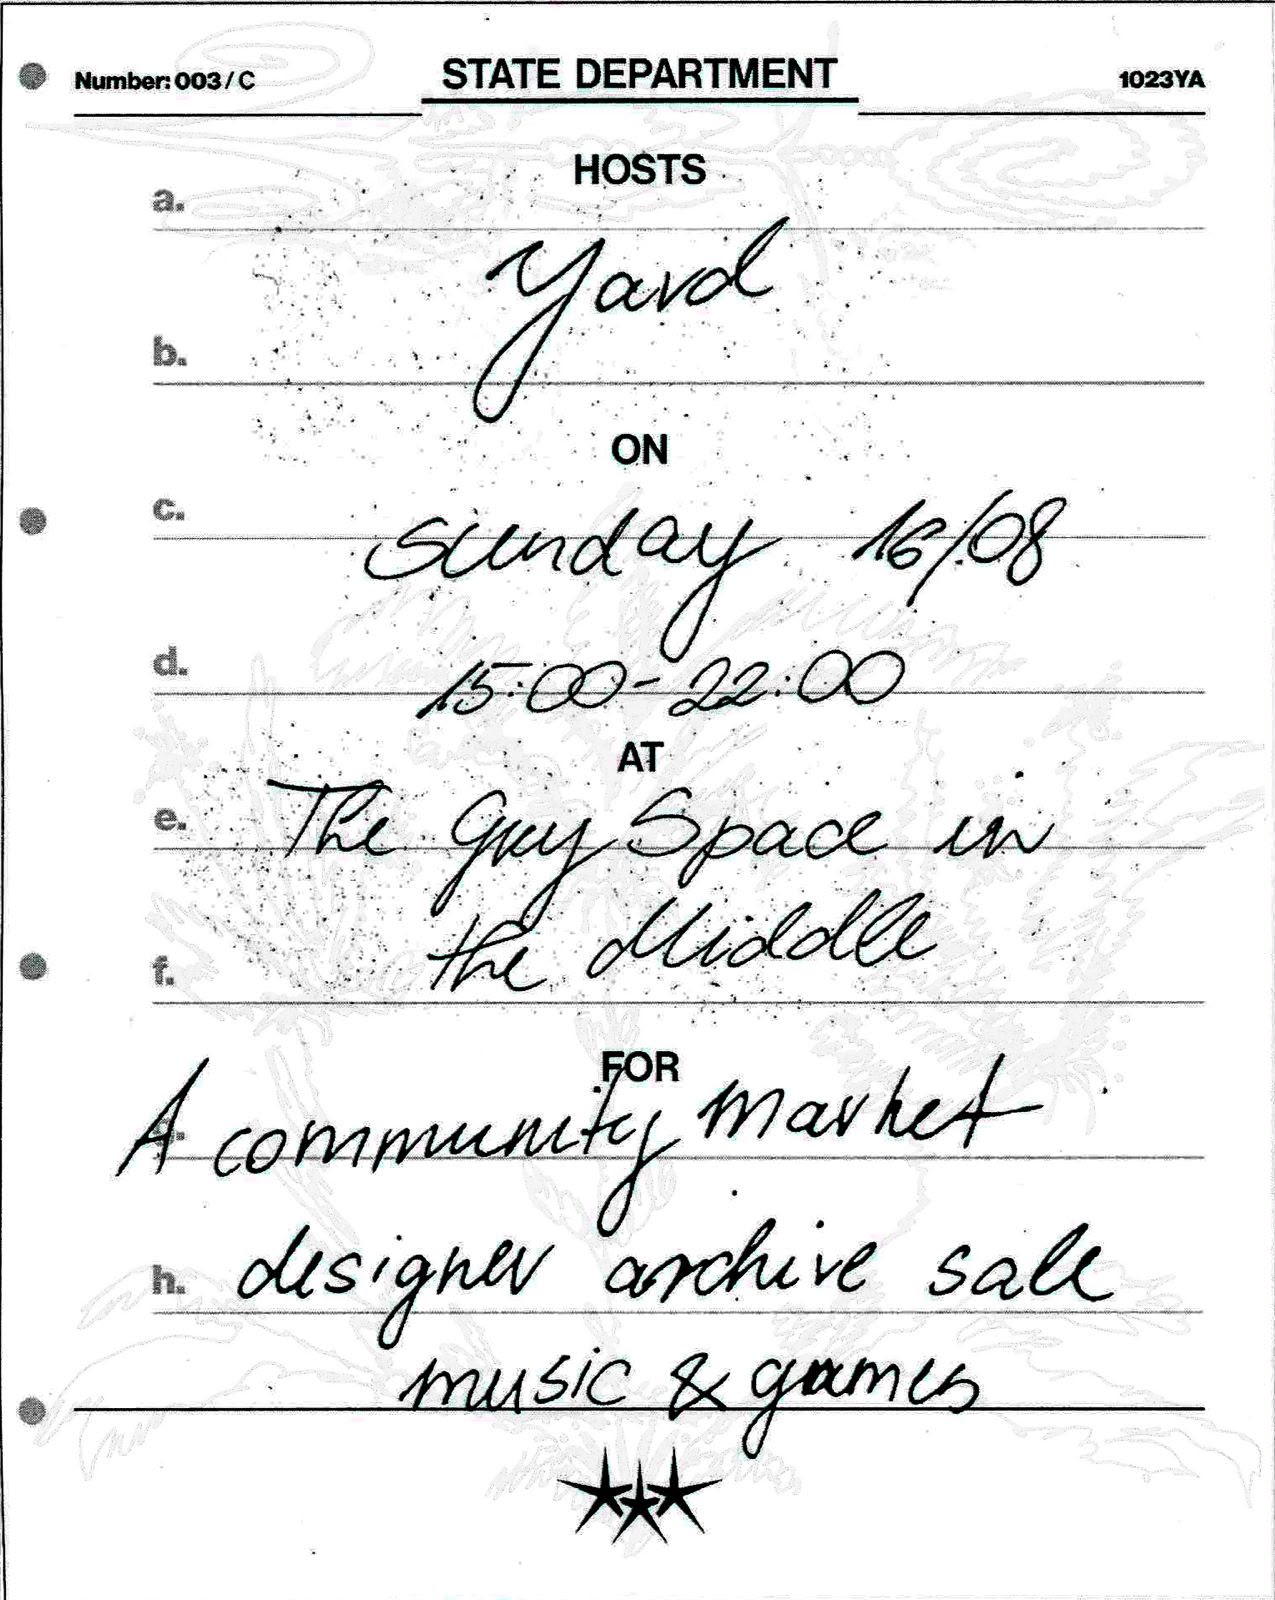 Number: 003/C
STATE DEPARTMENT
1023YA
HOSTS
a.
Yard
b.
ON
c.
Sunday 16/08
d.
15:00-22:00
AT
e.
The Grey Space in
f.
the Middle
FOR
g.
A community market
h.
designer archive sale
music & games